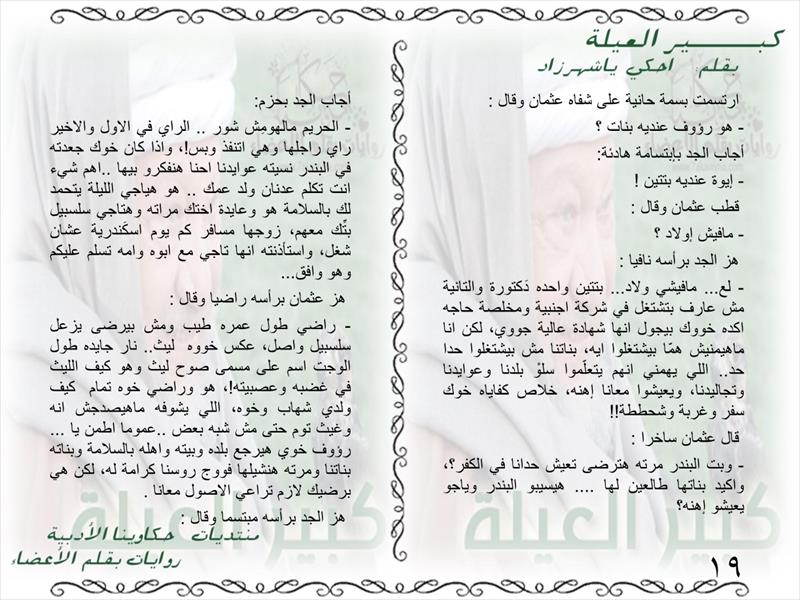 كبـــــــير العيلة
بقلم احكي ياشهرزاد
ارتسمت بسمة حانية على شفاه عثمان وقال :
- هو رؤوف عنديه بنات ؟
أجاب الجد بإبتسامة هادئة:
- إيوة عنديه بنتين !
قطب عثمان وقال :
- مافيش إولاد ؟
هز الجد برأسه نافيا :
- لع... مافيشي ولاد... بنتين واحده دَكتورة والتانية
مش عارف بتشتغل في شركة اجنبية ومخلصة حاجه
اكده خووك بيجول انها شهادة عالية جووي، لكن انا
ماهيمنيش همّا بيشتغلوا ايه، بناتنا مش بيشتغلوا حدا
حد.. اللي يهمني انهم يتعلّموا سلوْ بلدنا وعوايدنا
وتجاليدنا، ويعيشوا معانا إهنه، خلاص كفاياه خوك
سفر وغربة وشحططة!!
قال عثمان ساخرا :
- وبت البندر مرته هترضى تعيش حدانا في الكفر؟،
واكيد بناتها طالعين لها .... هيسيبو البندر وياجو
يعيشو إهنه؟
أجاب الجد بحزم:
- الحريم مالهومِش شور .. الراي في الاول والاخير
راي راجلها وهي اتنفذ وبس!، واذا كان خوك جعدته
في البندر نسيته عوايدنا احنا هنفكرو بيها ..اهم شيء
انت تكلم عدنان ولد عمك .. هو هياجي الليلة يتحمد
لك بالسلامة هو وعايدة اختك مراته وهتاجي سلسبيل
بتّك معهم، زوجها مسافر كم يوم اسكَندرية عشان
شغل، واستأذنته انها تاجي مع ابوه وامه تسلم عليكم
وهو وافق...
هز عثمان برأسه راضيا وقال :
- راضي طول عمره طيب ومش بيرضى يزعل
سلسبيل واصل، عكس خووه ليث.. نار جايده طول
الوجت اسم على مسمى صوح ليث وهو كيف الليث
في غضبه وعصبيته!، هو وراضي خوه تمام كيف
ولدي شهاب وخوه، اللي يشوفه ماهيصدجش انه
وغيث توم حتى مش شبه بعض ..عموما اطمن يا ...
رؤوف خوي هيرجع بلده وبيته واهله بالسلامة وبناته
بناتنا ومرته هنشيلها فووج روسنا كرامة له، لكن هي
برضيك لازم تراعي الاصول معانا .
هز الجد برأسه مبتسما وقال :
منتديات حكاوينا الأدبية
روايات بقلم الأعضاء
١٩
كبير العيلة
كبير العيلة